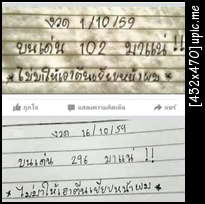 งวด 1/10/59
บนเด่น 102 มาแน่ !!
* ไม่มาให้เอาตีนเหยียบหน้าผม *
ถูกใจ แสดงความคิดเห็น แชร์
งวด 16/10/59
บนเด่น 296 มาแน่ !!
* ไม่มาให้เอาตีนเหยียบหน้าผม *
[452x470] upic.me